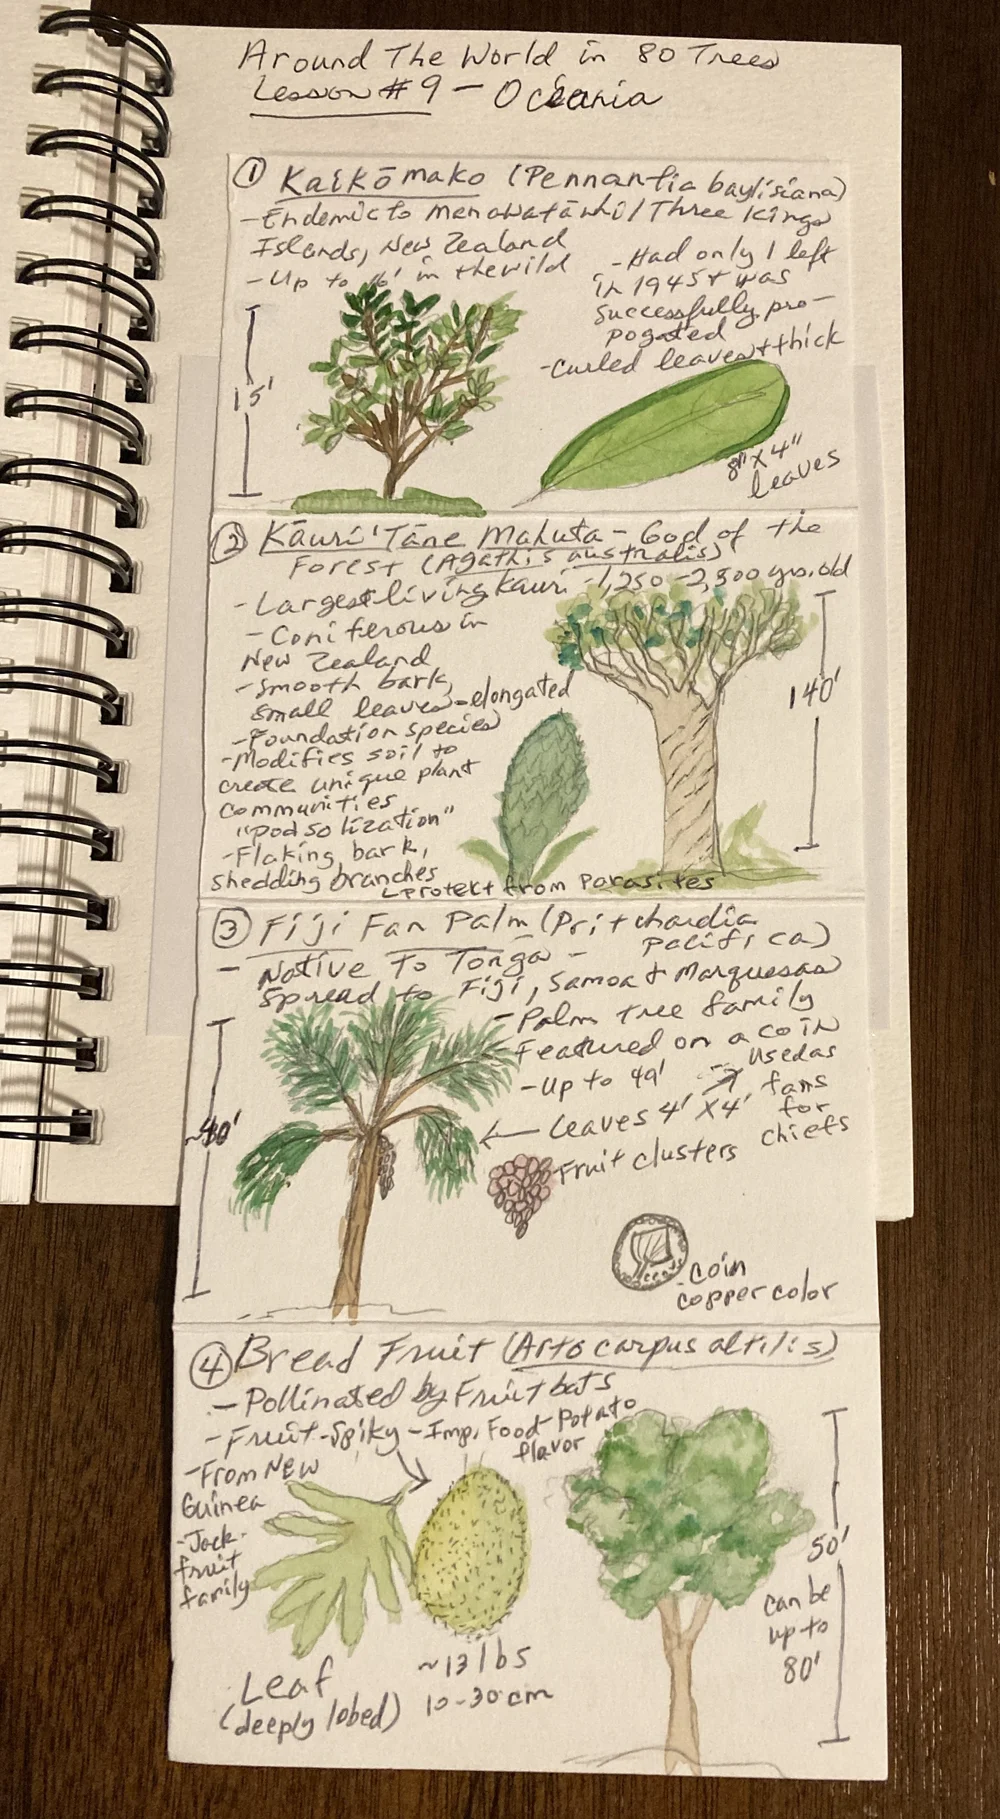 Around The World in 80 Trees
Lesson #9 - Oceania
① Kaikōmako (Pennantia baylisiana)
- Endemic to Manawatāwhi/Three Kings
Islands, New Zealand
- Up to 16' in the wild
- Had only 1 left
in 1945 + was
successfully pro-
pogated
- Curled leaves + thick
15'
8" x 4"
leaves
② Kauri 'Tāne Mahuta - God of the
Forest (Agathis australis)
- Largest living Kauri - 1,250 - 2,500 yrs. old
- Coniferous in
New Zealand
- Smooth bark,
small leaves - elongated
- Foundation species
- Modifies soil to
create unique plant
communities
"podsolization"
- Flaking bark,
shedding branches
protekt from parasites
140'
③ Fiji Fan Palm (Pritchardia
pacifica)
- Native To Tonga -
Spread to Fiji, Samoa + Marquesas
- Palm tree family
Featured on a coin
- Up to 49'
Used as
fans
for
chiefs
Leaves 4' x 4'
Fruit clusters
~40'
coin
copper color
④ Bread Fruit (Artocarpus altilis)
- Pollinated by Fruit bats
- Fruit - Spiky - Imp. Food - Potato
flavor
- From New
Guinea
- Jack-
fruit
family
Leaf
(deeply lobed)
~13 lbs
10-30 cm
50'
can be
up to
80'